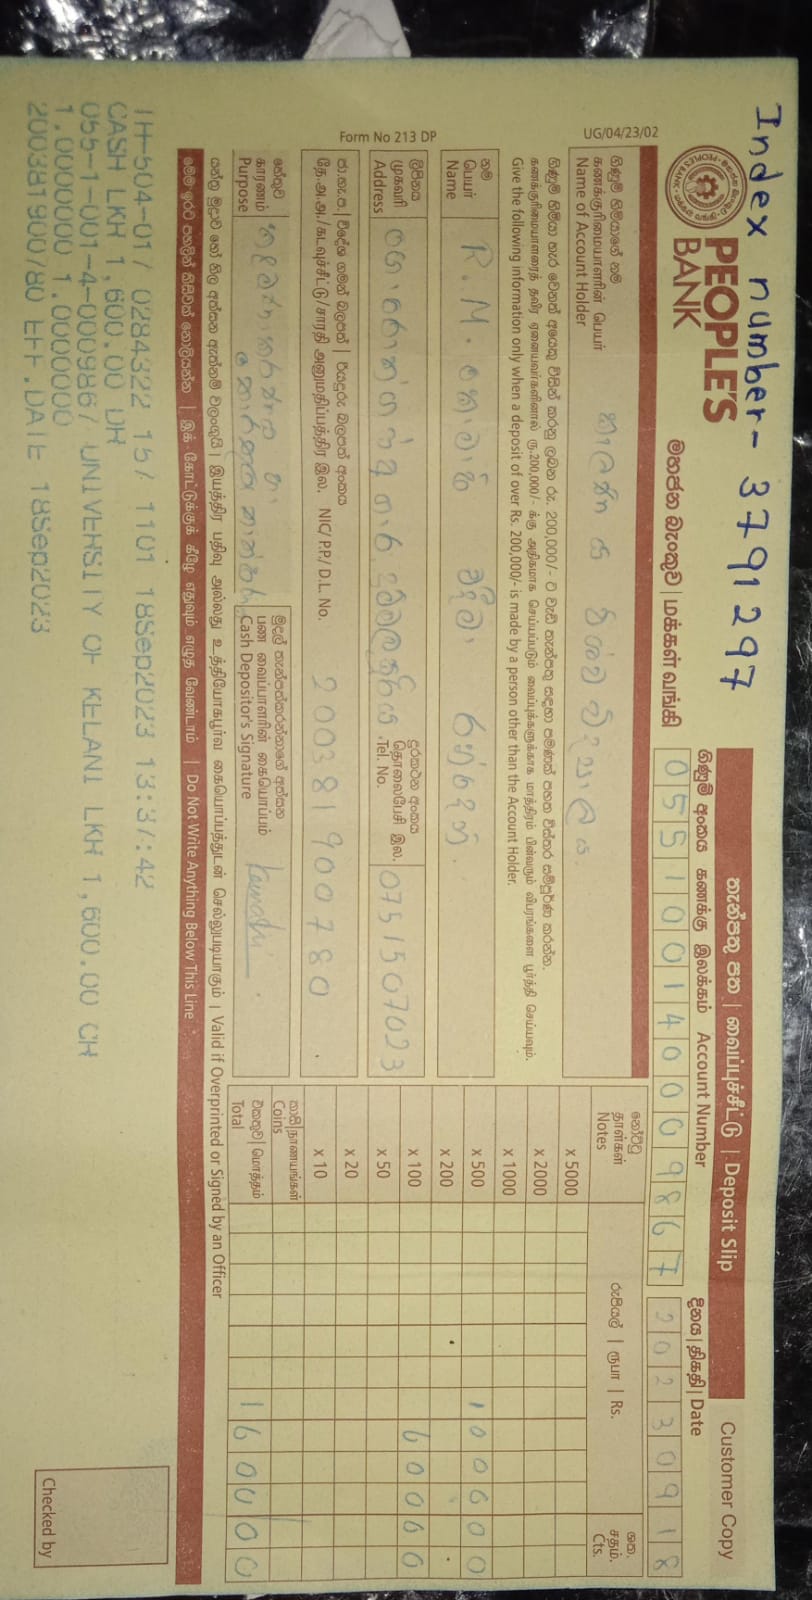 Index number- 3791297
PEOPLE'S
BANK
මහජන බැංකුව | மக்கள் வங்கி
තැන්පතු පත | வைப்புச்சீட்டு | Deposit Slip
Customer Copy
ගිණුම් අංකය கணக்கு இலக்கம் Account Number
දිනය | திகதி | Date
055100140009867
20230918
UG/04/23/02
ගිණුම් හිමියාගේ නම
கணக்குரிமையாளரின் பெயர்
Name of Account Holder
කැලණිය විශ්ව විද්‍යාලය
ගිණුම් හිමියා හැර වෙනත් අයෙකු විසින් කරනු ලබන රු. 200,000/- ට වැඩි තැන්පතු සඳහා පමණක් පහත විස්තර සම්පූර්ණ කරන්න.
கணக்குரிமையாளரைத் தவிர ஏனையவர்களினால் ரூ.200,000/- க்கு அதிகமாக செய்யப்படும் வைப்புக்களுக்காக மாத்திரம் பின்வரும் விபரங்களை பூர்த்தி செய்யவும்.
Give the following information only when a deposit of over Rs. 200,000/- is made by a person other than the Account Holder.
නම
பெயர்
Name
R.M.
ලිපිනය
முகவரி
Address
දුරකථන අංකය
தொலைபேசி இல.
Tel. No.
0751507023
Form No 213 DP
ජා.හැ.ප. | විදේශ ගමන් බලපත් | රියදුරු බලපත් අංකය
தே.அ.அ./கடவுச்சீட்டு/சாரதி அனுமதிப்பத்திர இல. NIC/ P.P./ D.L. No.
200381900780
හේතුව
காரணம்
Purpose
මුදල් තැන්පත්කරන්නාගේ අත්සන
பண வைப்பாளரின் கையொப்பம்
Cash Depositor's Signature
නෝට්ටු
தாள்கள்
Notes
රුපියල් | ரூபா | Rs.
ශත.
சதம்.
Cts.
x 5000
x 2000
x 1000
x 500 100000
x 200
x 100 60000
x 50
x 20
x 10
කාසි | நாணயங்கள்
Coins
එකතුව | மொத்தம்
Total 160000
යන්ත්‍ර මුද්‍රාව හෝ නිල අත්සන ඇත්නම් වලංගුයි | இயத்திர பதிவு அல்லது உத்தியோகபூர்வ கையொப்பத்துடன் செல்லுபடியாகும் | Valid if Overprinted or Signed by an Officer
මෙම ඉරට පහලින් කිසිවක් නොලියන්න | இக் கோட்டுக்குக் கீழே எதுவும் எழுத வேண்டாம் | Do Not Write Anything Below This Line
TH-504-01/ 0284322 157 1101 18Sep2023 13:37:42
CASH LKR 1,600.00 DR
055-1-001-4-0009867 UNIVERSITY OF KELANI LKR 1,600.00 CR
1.0000000 1.0000000
200381900780 EFF.DATE 18Sep2023
Checked by